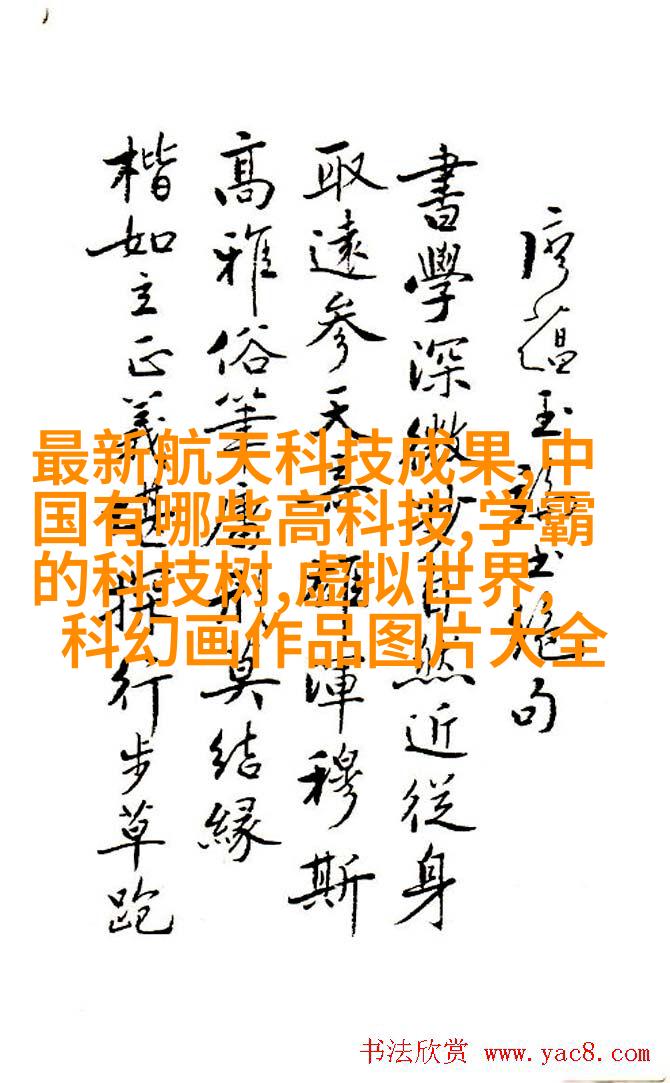 廖蘊玉
句
書學深微妙自然近從身
取遠參天渾穆斯
高雅俗筆庸莫結緣
楷如立正行步草跑
最新航天科技成果,中
国有哪些高科技,学霸
的科技树,虚拟世界,
科幻画作品图片大全
书法欣赏 www.yac8.com